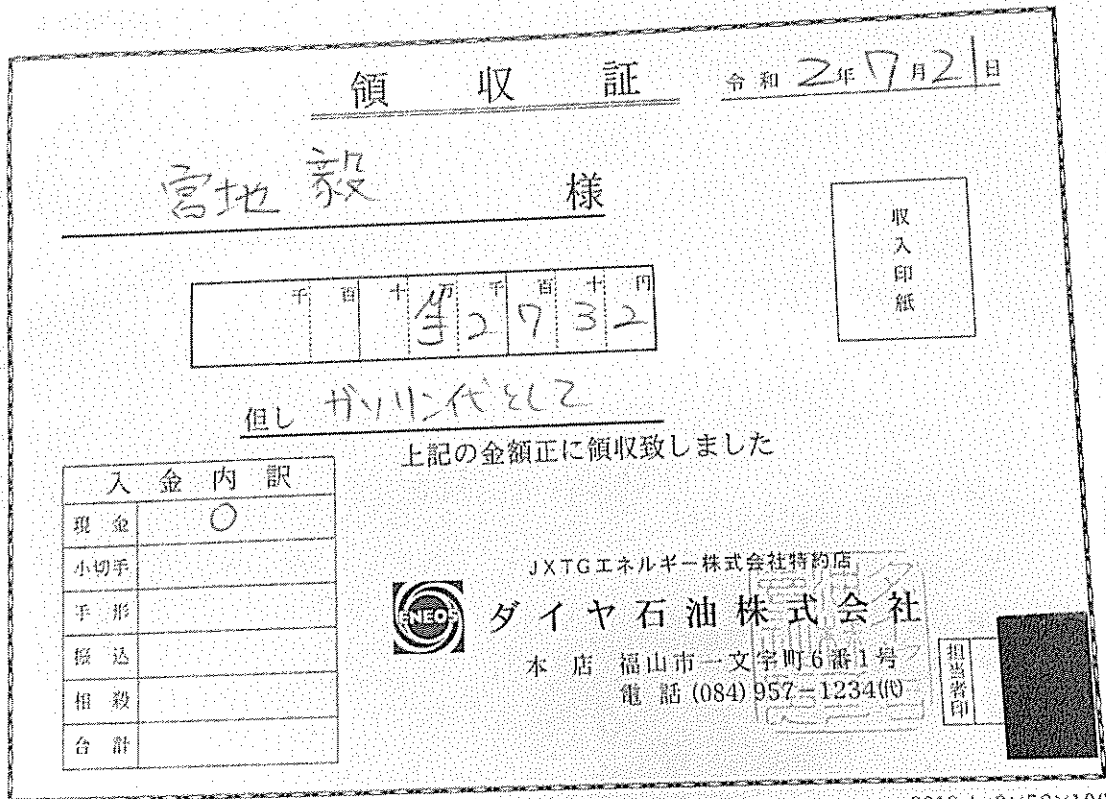 領収証
令和2年7月21日
宮地 毅 様
千百十万千百十円
¥2732
収入印紙
但し ガソリン代として
上記の金額正に領収致しました
入金内訳
現金 〇
小切手
手形
振込
相殺
合計
JXTGエネルギー株式会社特約店
ENEOS
ダイヤ石油株式会社
本店 福山市一文字町6番1号
電話 (084) 957-1234(代)
担当者印